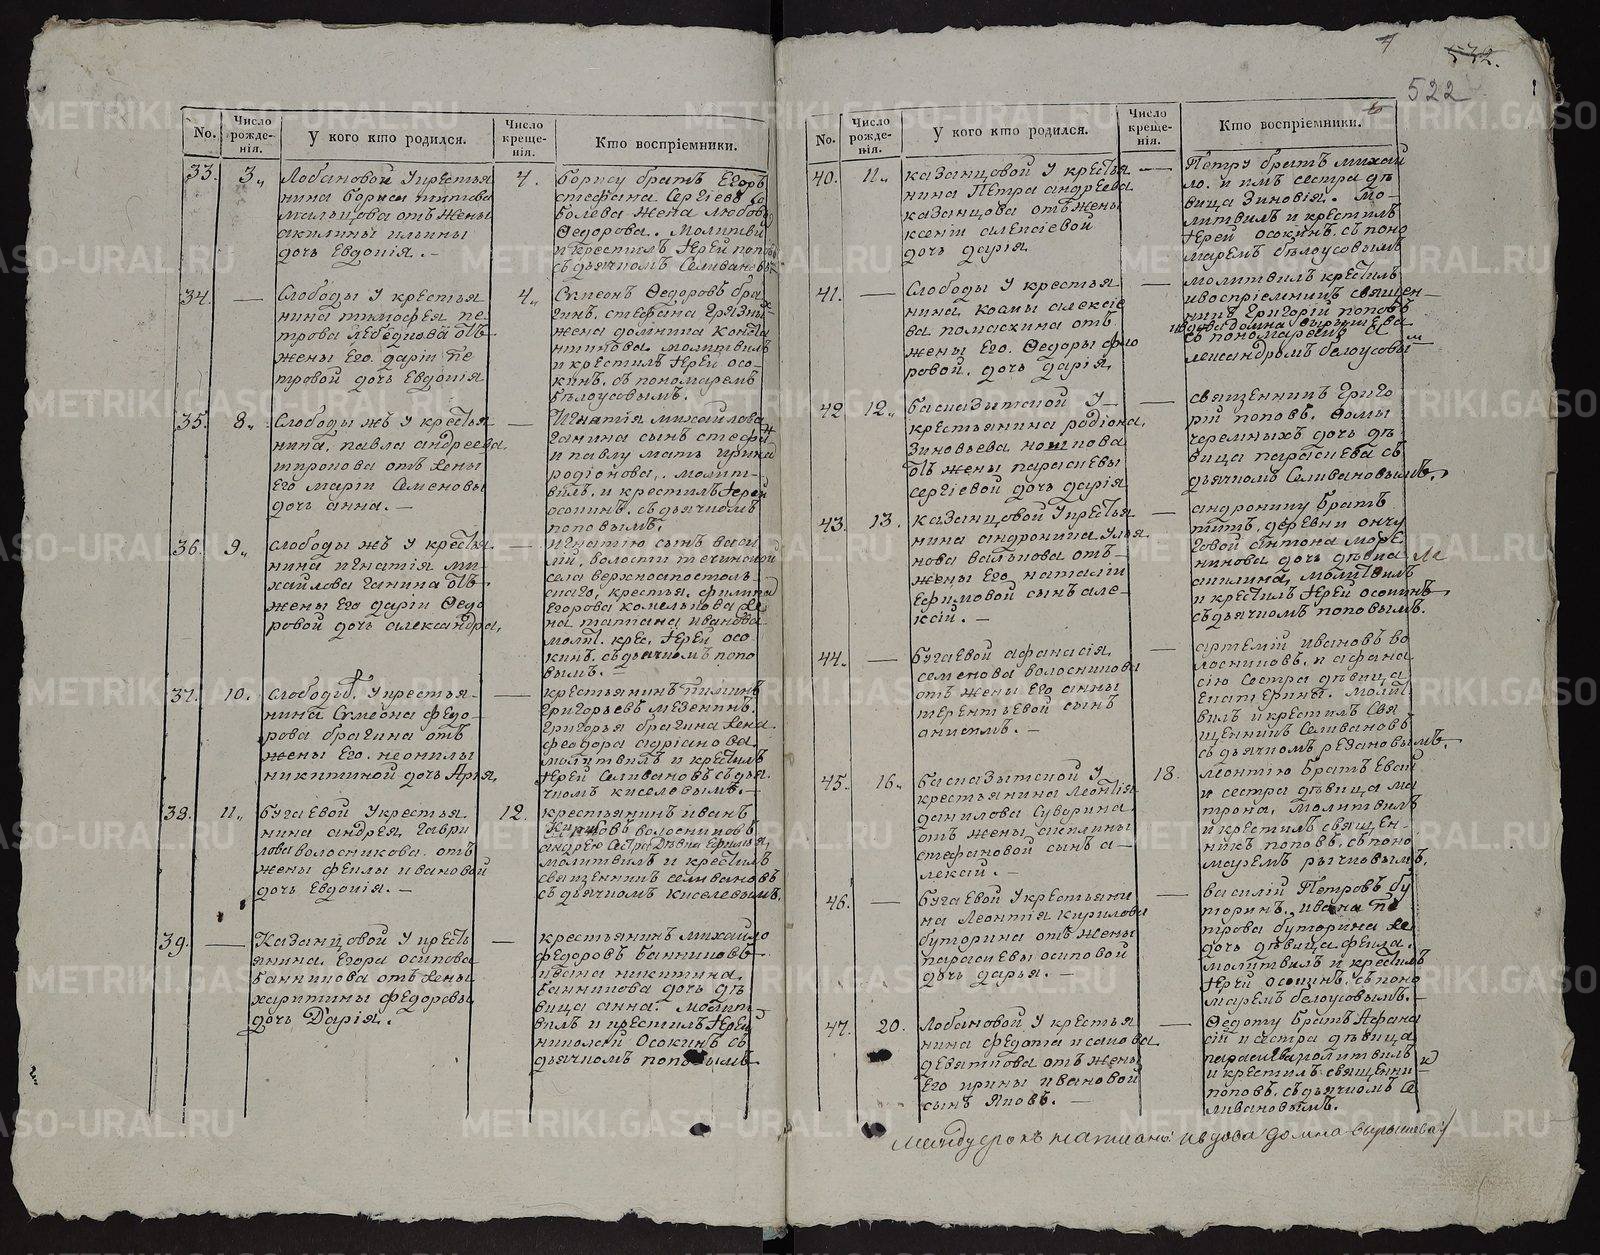 4
532.
522
No.
Число рожде-нія.
У кого кто родился.
Число креще-нія.
Кто воспріемники.
33.
3„
Лобановой У крестья
нина Бориса титова
мальцова отъ жены
акилины ильины
дочь Евдокія. —
4.
Борису братъ Егоръ
стефана Сергіевъ Со
болева жена любовь
Ѳедорова. Молитви
и крестилъ Іерей попов
съ дьячкомъ Селивановы
34.
—
Слободы У крестья
нина тимофея пе
трова лебедкова отъ
жены Его даріи пе
тровой дочь Евдокія
4„
Сумеонъ Ѳедоровъ бра
гинъ. стефана грязны
жена домника конста
нтинова. молитвилъ
и крестилъ Іерей осо-
кинъ. съ пономаремъ
бѣлоусовымъ.
35.
8„
Слободы жъ У крестья
нина. павла андреева
отъ жены
Его маріи Семеновы
дочь анна. —
—
Игнатія михайлова
ганина сынъ стефан
и павлу мать ирина
родіонова,. молит-
вилъ. и крестилъ Іерей
осокинъ. съ дьячкомъ
поповымъ.
36.
9„
слободы жъ У крестья
нина игнатія ми
хайлова ганина отъ
жены Его даріи Ѳедо
ровой дочь александра,
—
Игнатію сынъ васи
лій. волости теченской
села верхноапостоль-
скаго. крестья. филипа
Егорова комелькова же
на татіана иванова
молит. крес. Іерей осо
кинъ. съ дьячкомъ попо
вымъ. —
37.
10.
Слободы. У крестья-
нина Сумеона федо-
рова брагина отъ
жены Его. неонилы
никитиной дочь Арія,
—
крестьянинъ пименъ
григорьевъ мезенинъ.
григорья брагина жена
феодора адріанова.
молитвилъ и крестилъ
Іерей Селивановъ съ дья
чкомъ киселевымъ. —
38.
11„
бугаевой У крестья
нина андрея гаври
лова волосникова. отъ
жены феклы ивановой
дочь Евдокія. —
12.
крестьянинъ иванъ
волосниковъ
андрею сестра дѣвка Ефимья,
молитвилъ и крестилъ
священникъ селивановъ
съ дьячкомъ киселевымъ.
39.
—
Казанцовой У кресть
янина. Егора осипова
банникова отъ жены
харитины федоровы
дочь Дарія.
—
крестьянинъ михайло
федоровъ банниковъ
ивана никитина
банникова дочь дѣ
вица анна. Молит
вилъ и крестилъ Іерей
николай Осокинъ съ
дьячкомъ поповымъ
No.
Число рожде-нія.
У кого кто родился.
Число креще-нія.
Кто воспріемники.
40.
11„
казанцовой У крестья
нина Петра андреева
казанцова отъ жены
ксеніи алексіевой
дочь дарія
—
Петру братъ михай
ло. и имъ сестра дѣ
вица Зиновія. Мо-
литвилъ и крестилъ
Іерей осокинъ. съ поно
маремъ бѣлоусовымъ
41.
—
Слободы У крестья
нина, козмы алексіе
ва помаскина отъ
жены Его. Ѳедоры фло
ровой. дочь дарія,
—
Молитвилъ крестилъ
и воспріемникъ священ-
никъ григорій поповъ
съ пономаремъ а
лександромъ белоусовым
42
12„
басказытской У —
крестьянина родіона,
Зиновьева ноштова
отъ жены парасковы
сергіевой дочь дарія
—
священникъ григо
рій поповъ. фомы
черемныхъ дочь дѣ
вица парасіева съ
дьячкомъ Селивановымъ.
43.
13.
казанцовой У крестья
нина андроника улья
нова валькова отъ
жены Его наталіи
Ефимовой сынъ але-
ксій. —
—
андронику братъ
титъ. деревни окчу
говой антона море
нинова дочь дѣвка
акилина, молитвилъ
и крестилъ Іерей осокинъ
съ дьячкомъ поповымъ.
44„
—
бугаевой афанасія
семенова волосникова
отъ жены Его анны
терентьевой сынъ
анисимъ. —
—
артемій ивановъ во
лосниковъ. и афана
сію сестра дѣвица
екатерина. молит
вилъ и крестилъ свя
щенникъ Селивановъ
съ дьячкомъ редановымъ.
45.
16„
басказытской У
крестьянина леонтія
данилова суворина.
отъ жены акилины
стефановой сынъ а-
лексій. —
18.
леонтію братъ Евсій
и сестра дѣвица ма
трона, молитвилъ
и крестилъ священ-
никъ поповъ. съ поно
маремъ рычковымъ.
46.
—
бугаевой У крестьяни
на леонтія кирилова
буторина отъ жены
парасіевы осиповой
дочь дарья. —
—
василій Петровъ бу
торинъ. ивана пе
трова буторина же
дочь дѣвица фекла.
молитвилъ и крестилъ
Іерей осокинъ. съ поно
маремъ белоусовымъ. —
47.
20.
Лобановой У крестья
нина федота исакова
девяткова отъ жены
Его ирины ивановой
сынъ Яковъ. —
—
Ѳедоту братъ Афана
сій и сестра дѣвица
парасіева молитвилъ
и крестилъ священни
поповъ. съ дьячкомъ се
ливановымъ.
Между строкъ написано: и вдова домна